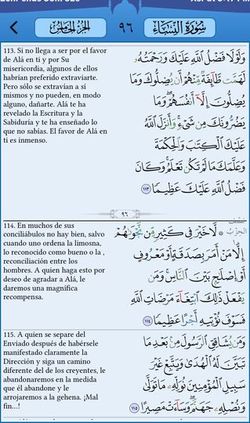 سُورَةُ النِّسَاءِ
٩٦
الجزء الخامس
113. Si no llega a ser por el favor
de Alá en ti y por Su
misericordia, algunos de ellos
habrían preferido extraviarte.
Pero sólo se extravían a sí
mismos y no pueden, en modo
alguno, dañarte. Alá te ha
revelado la Escritura y la
Sabiduría y te ha enseñado lo
que no sabías. El favor de Alá en
ti es inmenso.
وَلَوْلَا فَضْلُ ٱللَّهِ عَلَيْكَ وَرَحْمَتُهُۥ
لَهَمَّت طَّآئِفَةٌ مِّنْهُمْ أَن يُضِلُّوكَ وَمَا
يُضِلُّونَ إِلَّآ أَنفُسَهُمْ ۖ وَمَا
يَضُرُّونَكَ مِن شَىْءٍ ۚ وَأَنزَلَ ٱللَّهُ
عَلَيْكَ ٱلْكِتَٰبَ وَٱلْحِكْمَةَ
وَعَلَّمَكَ مَا لَمْ تَكُن تَعْلَمُ ۚ وَكَانَ
فَضْلُ ٱللَّهِ عَلَيْكَ عَظِيمًا ١١٣
٩٦
114. En muchos de sus
conciliábulos no hay bien, salvo
cuando uno ordena la limosna,
lo reconocido como bueno o la ,
reconciliación entre los
hombres. A quien haga esto por
deseo de agradar a Alá, le
daremos una magnífica
recompensa.
لَّا خَيْرَ فِى كَثِيرٍ مِّن نَّجْوَىٰهُمْ
إِلَّا مَنْ أَمَرَ بِصَدَقَةٍ أَوْ مَعْرُوفٍ
أَوْ إِصْلَٰحٍ بَيْنَ ٱلنَّاسِ ۚ وَمَن
يَفْعَلْ ذَٰلِكَ ٱبْتِغَآءَ مَرْضَاتِ ٱللَّهِ
فَسَوْفَ نُؤْتِيهِ أَجْرًا عَظِيمًا ١١٤
115. A quien se separe del
Enviado después de habérsele
manifestado claramente la
Dirección y siga un camino
diferente del de los creyentes, le
abandonaremos en la medida
que él abandone y le
arrojaremos a la gehena. ¡Mal
fin...!
وَمَن يُشَاقِقِ ٱلرَّسُولَ مِنۢ بَعْدِ مَا
تَبَيَّنَ لَهُ ٱلْهُدَىٰ وَيَتَّبِعْ غَيْرَ
سَبِيلِ ٱلْمُؤْمِنِينَ نُوَلِّهِۦ مَا تَوَلَّىٰ
وَنُصْلِهِۦ جَهَنَّمَ ۖ وَسَآءَتْ مَصِيرًا ١١٥